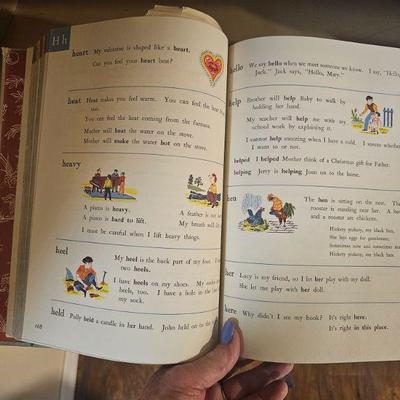 H h
heart My valentine is shaped like a heart.
Can you feel your heart beat?
heat Heat makes you feel warm. You can feel the heat from the
sun.
You can feel the heat coming from the furnace.
Mother will heat the water on the stove.
Mother will make the water hot on the stove.
heavy
A piano is heavy.
A piano is hard to lift.
I must be careful when I lift heavy things.
A feather is not
My breath will
heel
My heel is the back part of my foot. I
two heels.
I have heels on my shoes. My socks have
heels, too. I have a hole in the heel of
my sock.
held Polly held a candle in her hand. John held on to the
168
hello We say hello when we meet someone we know. I say, "Hello,
Jack." Jack says, "Hello, Mary."
help Brother will help Baby to walk by
holding her hand.
My teacher will help me with my
school work by explaining it.
I cannot help sneezing when I have a cold. I sneeze whether
I want to or not.
helped I helped Mother think of a Christmas gift for Father.
helping Jerry is helping Joan tie her shoe.
hen
The hen is sitting on the nest. The
rooster is standing near her. A hen and
a rooster are chickens.
Hickety pickety, my black hen,
She lays eggs for gentlemen;
Sometimes nine and sometimes ten,
Hickety pickety, my black hen.
her Lucy is my friend, so I let her play with my doll.
She let me play with her doll.
here Why didn't I see my book? It's right here.
It's right in this place.